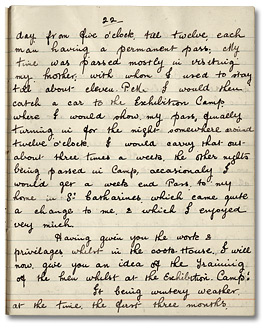 22
day from five o'clock, till twelve, each
man having a permanent pass; My
time was passed mostly in visiting
my mother, with whom I used to stay
till about eleven P.M. I would then
catch a car to the Exhibition Camp
where I would show my pass, finally
turning in for the night somewhere around
twelve o'clock. I would carry that out
about three times a week, the other nights
being passed in Camp, occasionaly I
would get a weeks end Pass, to my
home in St Catharines which came quite
a change to me, & which I enjoyed
very much.
Having given you the work &
privilages whilst in the cook-house, I will
now, give you an idea of the training
of the men whilst at the Exhibition Camp:
It being wintery weather
at the time, the first three months